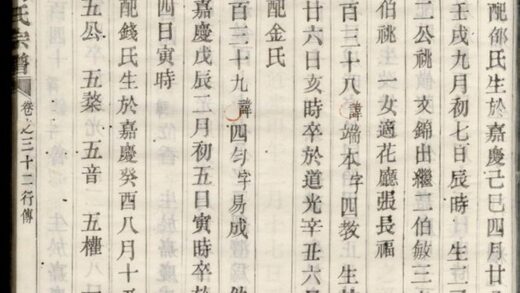 氏生於嘉慶己巳四月廿
壬戌九月初七日辰時 生
二公祧 文錦出繼二伯敏三
伯祧 一女適花廳張長福
百三十八 諱端本字四教 生
廿六日亥時卒於道光辛丑六
配金氏
百三十九 諱四勻字易成
嘉慶戊辰二月初五日寅時卒
四日寅時
配錢氏生於嘉慶癸酉八月十
五公 五蘂 五音 五權
氏宗譜 卷之三十二行傳